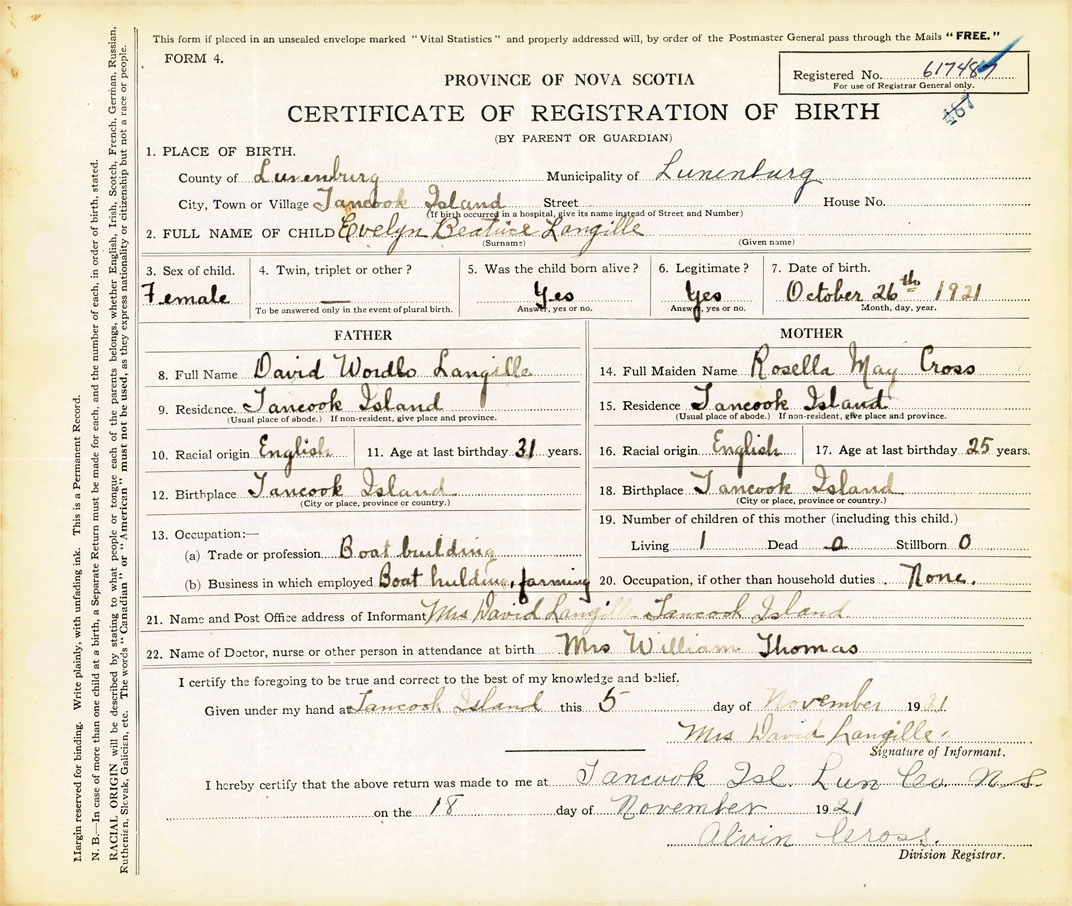 This form if placed in an unsealed envelope marked "Vital Statistics" and properly addressed will, by order of the Postmaster General pass through the Mails "FREE."
FORM 4.
Registered No. 617487
For use of Registrar General only.
467
PROVINCE OF NOVA SCOTIA
CERTIFICATE OF REGISTRATION OF BIRTH
(BY PARENT OR GUARDIAN)
1. PLACE OF BIRTH.
County of Lunenburg Municipality of Lunenburg
City, Town or Village Tancook Island Street House No.
(If birth occurred in a hospital, give its name instead of Street and Number)
2. FULL NAME OF CHILD Evelyn Beatrice Langille
(Surname) (Given name)
3. Sex of child. 4. Twin, triplet or other? 5. Was the child born alive? 6. Legitimate? 7. Date of birth.
Female — Yes Yes October 26th 1921
To be answered only in the event of plural birth. Answer, yes or no. Answer, yes or no. Month, day, year.
FATHER
8. Full Name David Langille
9. Residence. Tancook Island
(Usual place of abode.) If non-resident, give place and province.
10. Racial origin English 11. Age at last birthday 31 years.
12. Birthplace Tancook Island
(City or place, province or country.)
13. Occupation:—
(a) Trade or profession Boat building
(b) Business in which employed Boat building, farming
MOTHER
14. Full Maiden Name Rosella May Cross
15. Residence Tancook Island
(Usual place of abode.) If non-resident, give place and province.
16. Racial origin English 17. Age at last birthday 25 years.
18. Birthplace Tancook Island
(City or place, province or country.)
19. Number of children of this mother (including this child.)
Living 1 Dead 0 Stillborn 0
20. Occupation, if other than household duties None.
21. Name and Post Office address of Informant Mrs David Langille Tancook Island
22. Name of Doctor, nurse or other person in attendance at birth Mrs William Thomas
I certify the foregoing to be true and correct to the best of my knowledge and belief.
Given under my hand at Tancook Island this 5 day of November 1921
Mrs David Langille.
Signature of Informant.
I hereby certify that the above return was made to me at Tancook Isl. Lun Co. N.S.
on the 18 day of November 1921
Alvin Cross.
Division Registrar.
Margin reserved for binding. Write plainly, with unfading ink. This is a Permanent Record.
N. B.—In case of more than one child at a birth, a Separate Return must be made for each, and the number of each, in order of birth, stated.
RACIAL ORIGIN will be described by stating to what people or tongue each of the parents belongs, whether English, Irish, Scotch, French, German, Russian,
Ruthenian, Slovak, Galician, etc. The words "Canadian" or "American" must not be used, as they express nationality or citizenship but not a race or people.